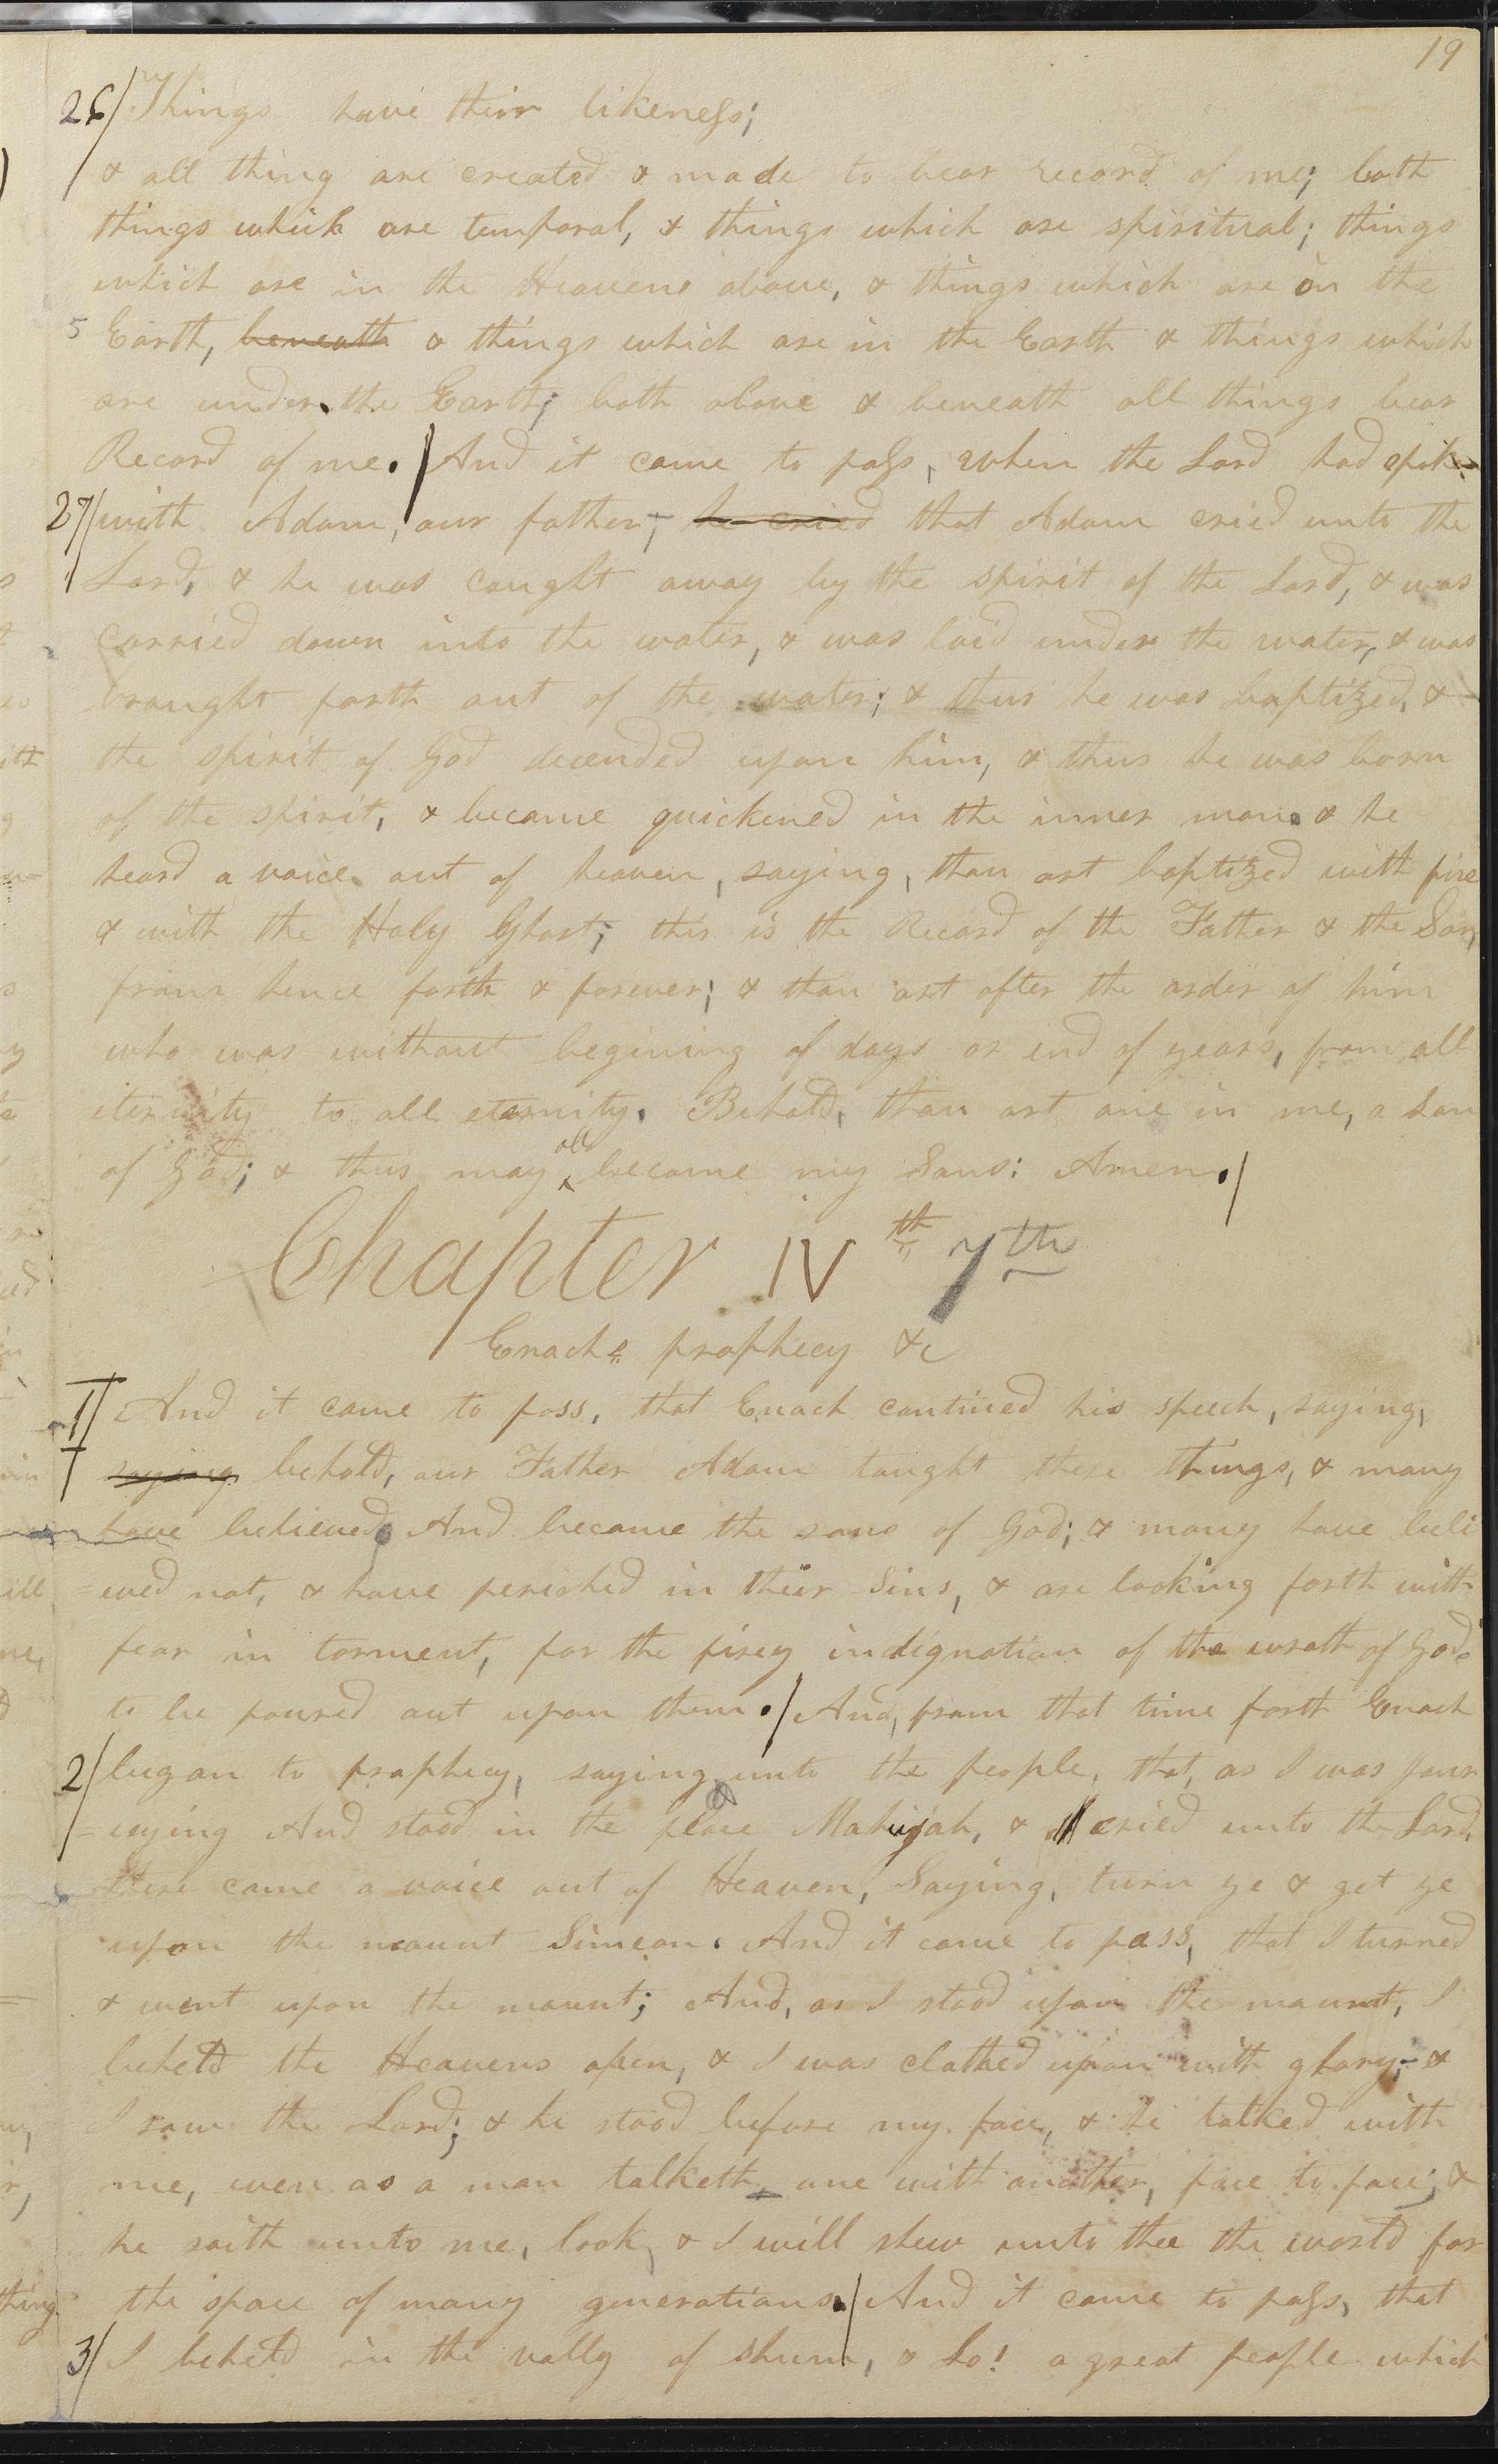 19
26/ Things have their likeness;
& all thing are created & made to bear record of me; both
things which are temporal, & things which are spiritual; things
which are in the Heavens above, & things which are on the
5 Earth, beneath & things which are in the Earth & things which
are under the Earth; both above & beneath all things bear
Record of me. / And it came to pass, when the Lord had spoke
27/ with Adam, our father, he cried that Adam cried unto the
Lord, & he was caught away by the spirit of the Lord, & was
carried down into the water, & was laid under the water, & was
brought forth out of the water; & thus he was baptized, &
the spirit of God decended upon him, & thus he was born
of the spirit, & became quickened in the inner man. & he
heard a voice out of heaven, saying, thou art baptized with fire
& with the Holy Ghost; this is the Record of the Father & the Son,
from hence forth & forever; & thou art after the order of him
who was without begining of days or end of years, from all
eternity to all eternity. Behold, thou art one in me, a son
of God; & thus may all become my Sons: Amen. /
Chapter IV th 7th
Enochs prophecy &c
1/ And it came to pass, that Enoch contined his speech, saying,
saying behold, our Father Adam taught these things, & many
have believed And became the sons of God; & many have beli
=eved not, & have perished in their Sins, & are looking forth with
fear in torment, for the firey indignation of the wrath of God
to be poured out upon them. / And, from that time forth Enoch
2/ began to prophecy, saying unto the people, that, as I was jour
=neying And stood in the place Mahujah, & cried unto the Lord,
there came a voice out of Heaven, Saying, turn ye & get ye
upon the mount Simeon. And it came to pass, that I turned
& went upon the mount; And, as I stood upon the mount, I
beheld the Heavens open, & I was clothed upon with glory; &
I saw the Lord; & he stood before my face, & he talked with
me, even as a man talketh, one with another, face to face; &
he saith unto me, look, & I will shew unto thee the world for
the space of many generations. / And it came to pass, that
3/ I beheld in the vally of shum, & Lo! a great people which